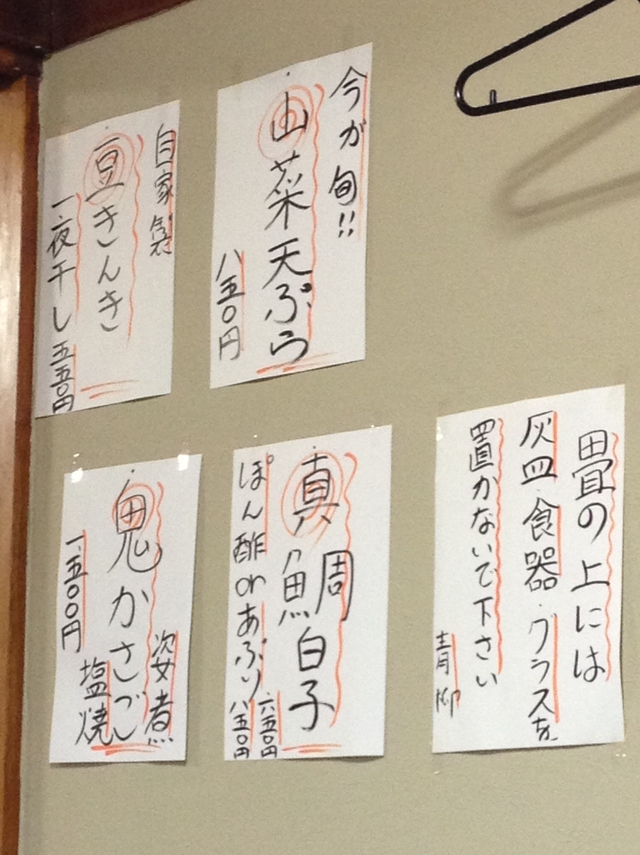 今が旬!!
山菜天ぷら
八五〇円
自家製
豆きんき
一夜干し 五五〇円
畳の上には
灰皿・食器・グラスを
置かないで下さい
青柳
真鯛白子
六五〇円
ぽん酢orあぶり
八五〇円
鬼かさご
姿煮
塩焼
一、五〇〇円